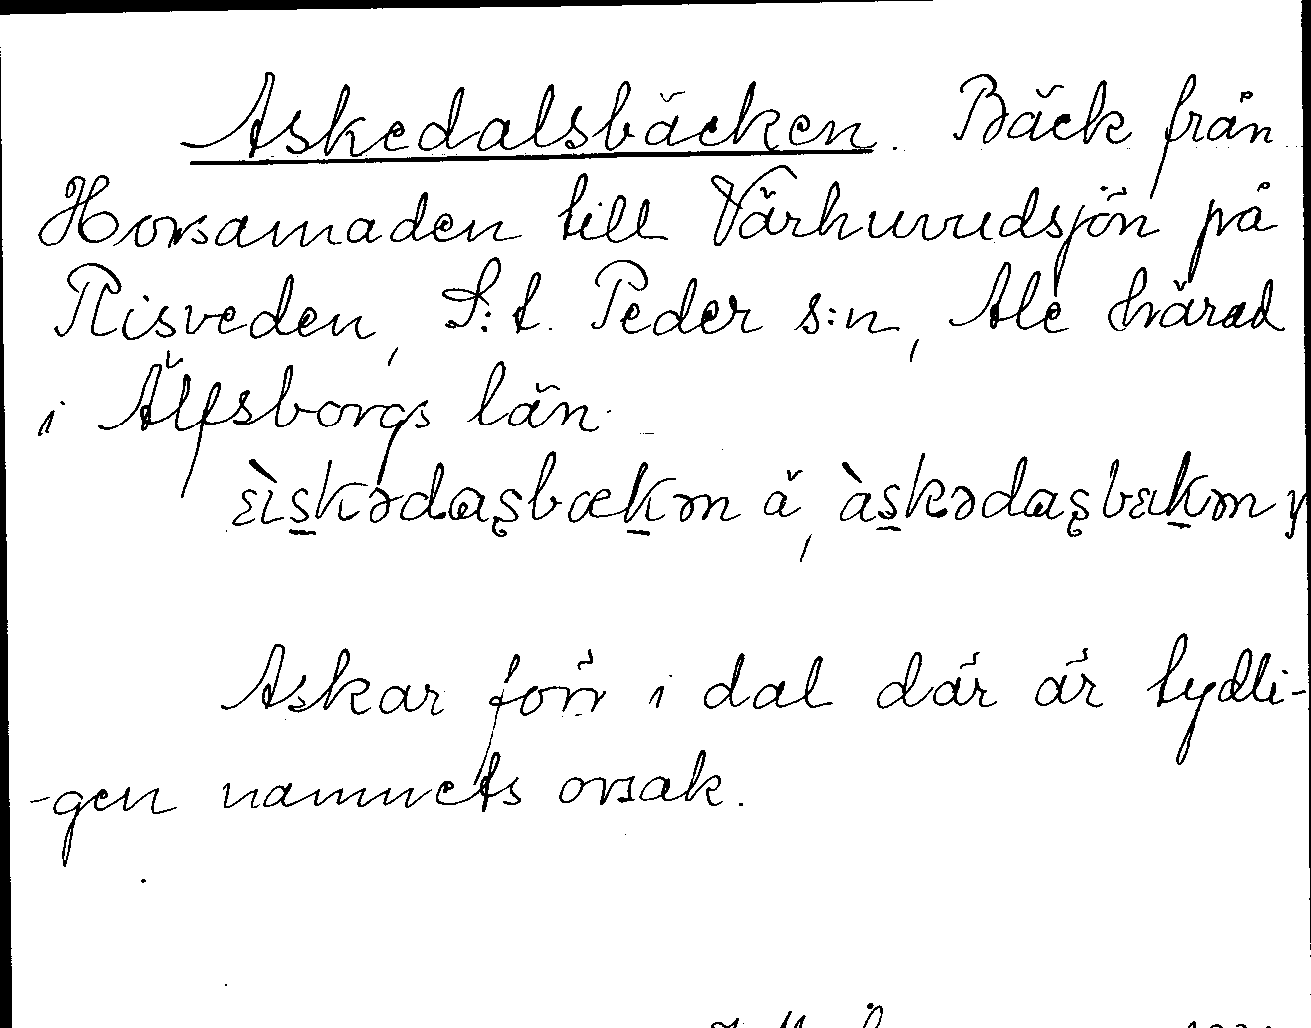 Askedalsbäcken. Bäck från
Horsamaden till Värhuvudsjön på
Risveden, S:t. Peder s:n, Ale härad
i Älfsborgs län.
ä,
Askar förr i dal där är tydli-
-gen namnets orsak.